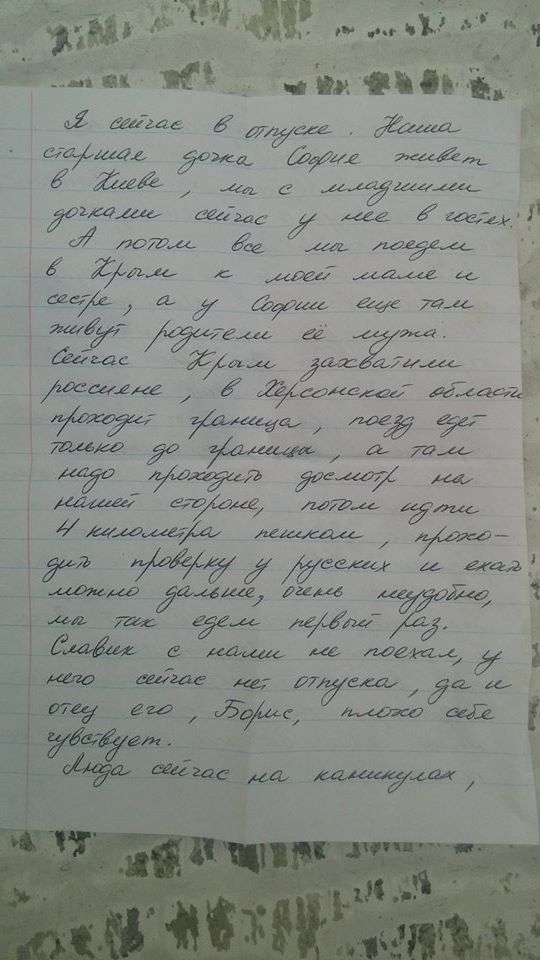 Я сейчас в отпуске. Наша
старшая дочка София живет
в Киеве, мы с младшими
дочками сейчас у нее в гостях.
А потом все мы поедем
в Крым к моей маме и
сестре, а у Софии еще там
живут родители её мужа.
Сейчас Крым захватили
россияне, в Херсонской области
проходит граница, поезд едет
только до границы, а там
надо проходить досмотр на
нашей стороне, потом идти
4 километра пешком, прохо-
дить проверку у русских и ехать
можно дальше, очень неудобно,
мы так едем первый раз.
Славик с нами не поехал, у
него сейчас нет отпуска, да и
отец его, Борис, плохо себя
чувствует.
Люда сейчас на каникулах,